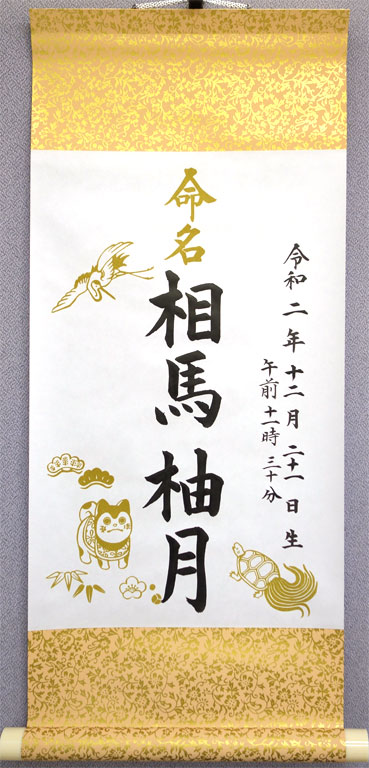 令和二年十二月二十一日生
午前十一時三十分
命名
相馬柚月